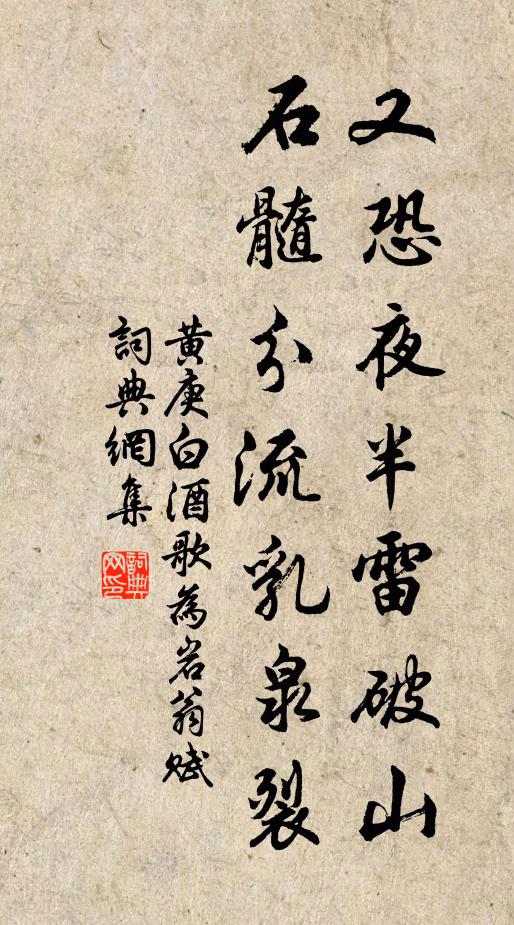 又恐夜半雷破山
石髓分流乳泉裂
黄庚白酒歌為岩翁賦
詞典網集
詞典网印